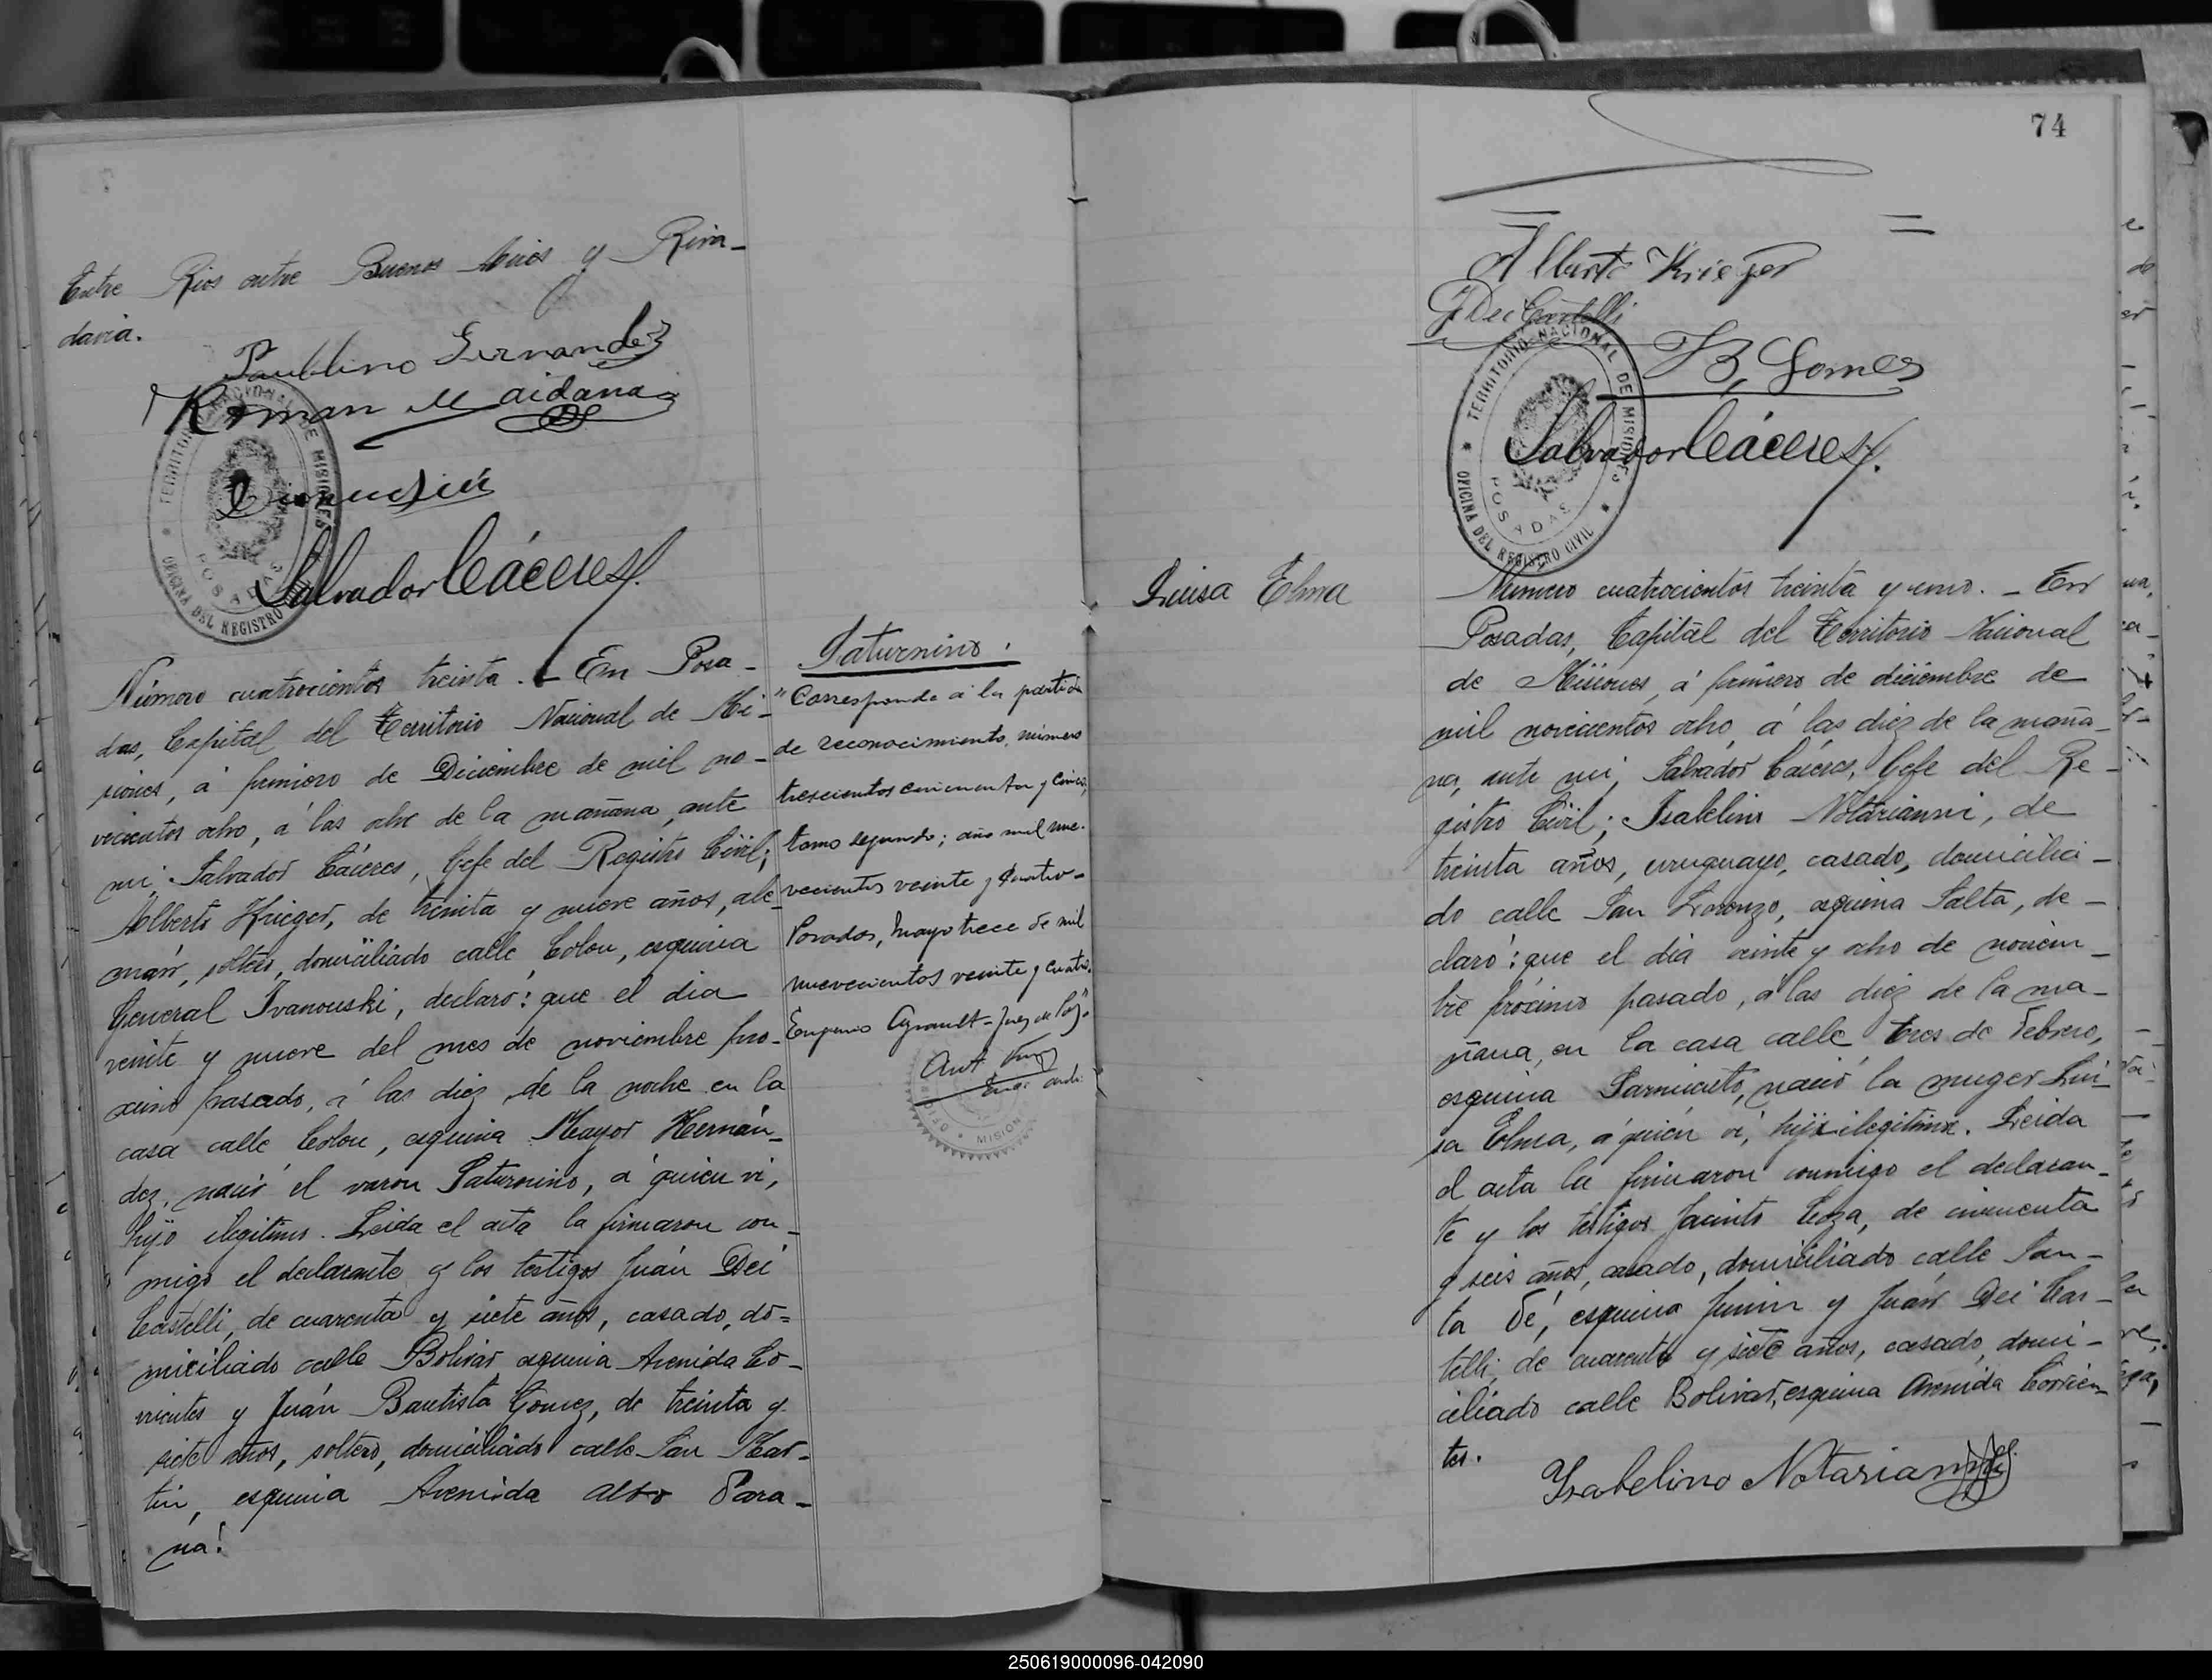 Entre Rios entre Buenos Aires y Riva-
davia.
Paublino Fernandez
Roman Maidana
Salvador Cáceres
TERRITORIO NACIONAL DE MISIONES
OFICINA DEL REGISTRO
POSADAS
Número cuatrocientos treinta. - En Posa-
das, Capital del Territorio Nacional de Mi-
siones, á primero de Diciembre de mil no-
vecientos ocho, á las ocho de la mañana, ante
mi, Salvador Cáceres, Gefe del Registro Civil;
Alberto Krieger, de treinta y nueve años, ale-
mán, soltero, domiciliado calle Colon, esquina
General Ivanouski, declaró: que el dia
veinte y nueve del mes de noviembre pro-
ximo pasado, á las diez de la noche en la
casa calle Colon, esquina Mayor Hernán-
dez, nació el varon Saturnino, á quien vi,
hijo ilegitimo. Leida el acta la firmaron con-
migo el declarante y los testigos Juán Dei
Castelli, de cuarenta y siete años, casado, do=
miciliado calle Bolivar esquina Avenida Co-
rrientes y Juán Bautista Gomez, de treinta y
siete años, soltero, domiciliado calle San Mar-
tin, esquina Avenida Alto Para-
ná.
Saturnino.
"Corresponde á la partida
de reconocimiento, número
trescientos cincuenta y cinco,
tomo segundo; año mil nue-
vecientos veinte y cuatro-
Posadas, Mayo trece de mil
nuevecientos veinte y cuatro.
Eugenio Agnault - Juez de Paz".
MISION
74
Alberto Krieger
J Dei Castelli
B, Gomes
Salvador Cáceres
TERRITORIO NACIONAL DE MISIONES
OFICINA DEL REGISTRO CIVIL
POSADAS
Luisa Elma
Número cuatrocientos treinta y uno. - En
Posadas, Capital del Territorio Nacional
de Misiones, á primero de diciembre de
mil novecientos ocho, á las diez de la maña-
na, ante mi, Salvador Cáceres, Gefe del Re-
gistro Civil; Isabelino Notarianni, de
treinta años, uruguayo, casado, domicilia-
do calle San Lorenzo, esquina Salta, de-
claró: que el dia veinte y ocho de noviem-
bre prócimo pasado, á las diez de la ma-
ñana, en la casa calle tres de Febrero,
esquina Sarmiento, nació la muger Lui-
sa Elma, á quien vi, hija ilegitima. Leida
el acta la firmaron conmigo el declaran-
te y los testigos Jacinto Loza, de cincuenta
y seis años, casado, domiciliado calle San-
ta Fé, esquina Junin y Juán Dei Cas-
telli, de cuarenta y siete años, casado, domi-
ciliado calle Bolivar, esquina Avenida Corrien-
tes.
Isabelino Notarianni
250619000096-042090